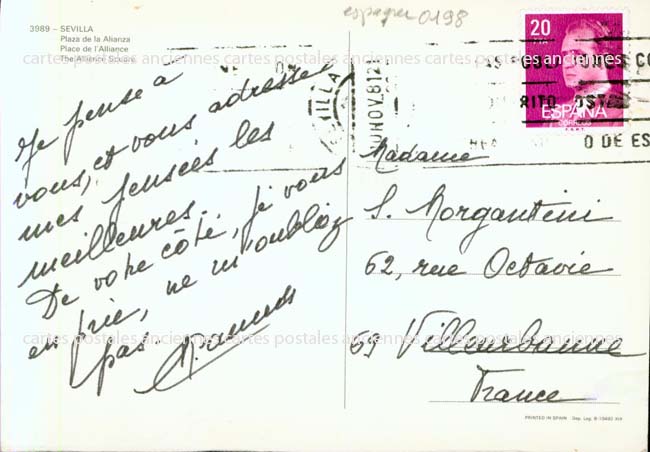 espagne 0198
3989 – SEVILLA
Plaza de la Alianza
Place de l'Alliance
The Alliance Square
Je pense à
vous, et vous adresse
mes pensées les
meilleures.
De votre côté, je vous
en prie, ne m'oubliez
pas.
20
PTA
ESPAÑA
CORREOS
F.N.M.T.
NOV.81
Madame
S. Morgantini
62, rue Octavie
69 Villeurbanne
France
O DE ES
PRINTED IN SPAIN - Dep. Leg. B-13492 XIX
cartes postales anciennes cartes postales anciennes cartes postales anciennes
cartes postales anciennes cartes postales anciennes cartes postales anciennes
cartes postales anciennes cartes postales anciennes cartes postales anciennes